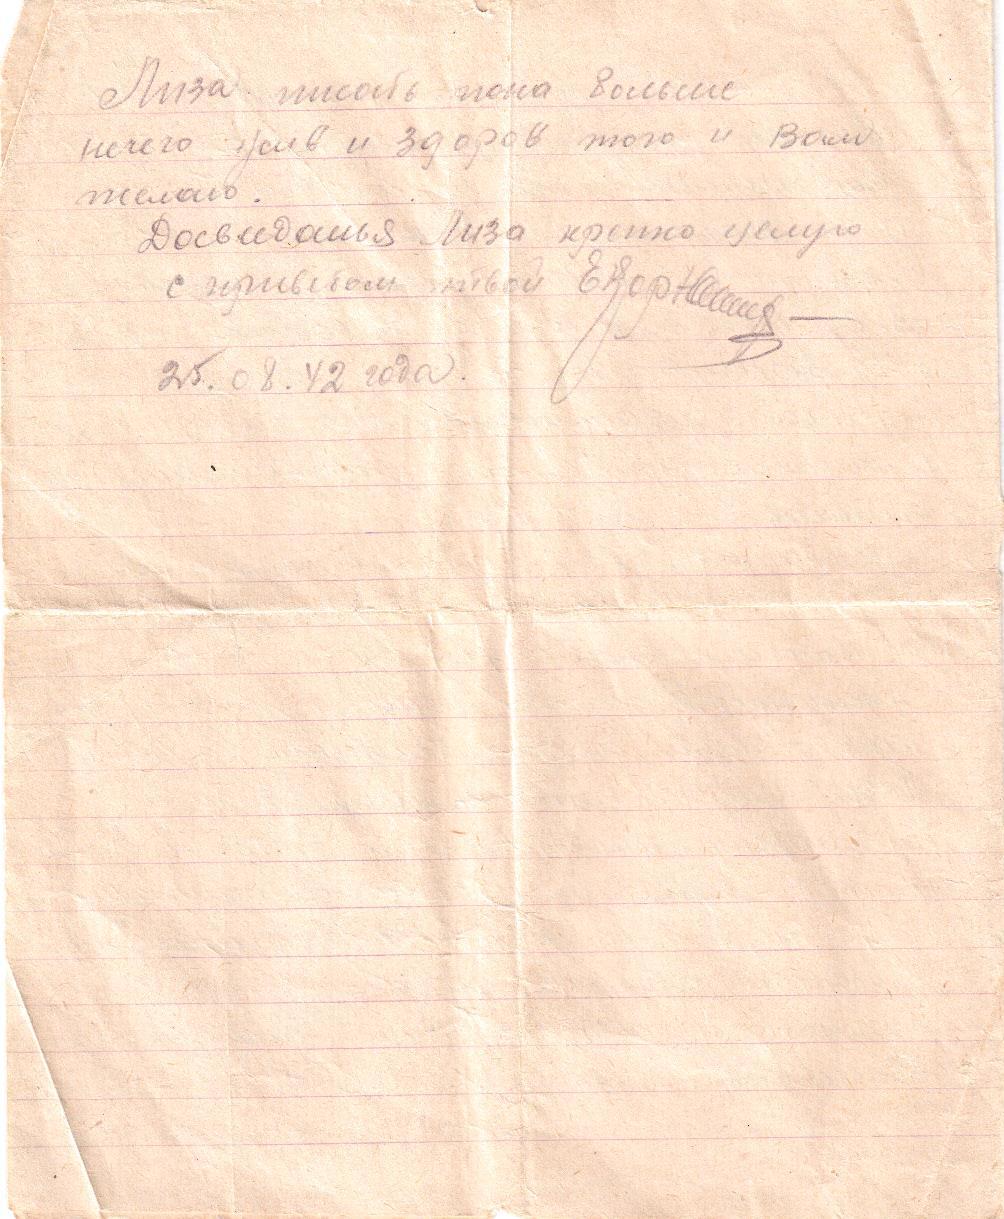 Лиза писать пока больше
нечего жив и здоров того и Вам
желаю.
Досвиданья Лиза крепко целую
с приветом твой
25.08.42 года.